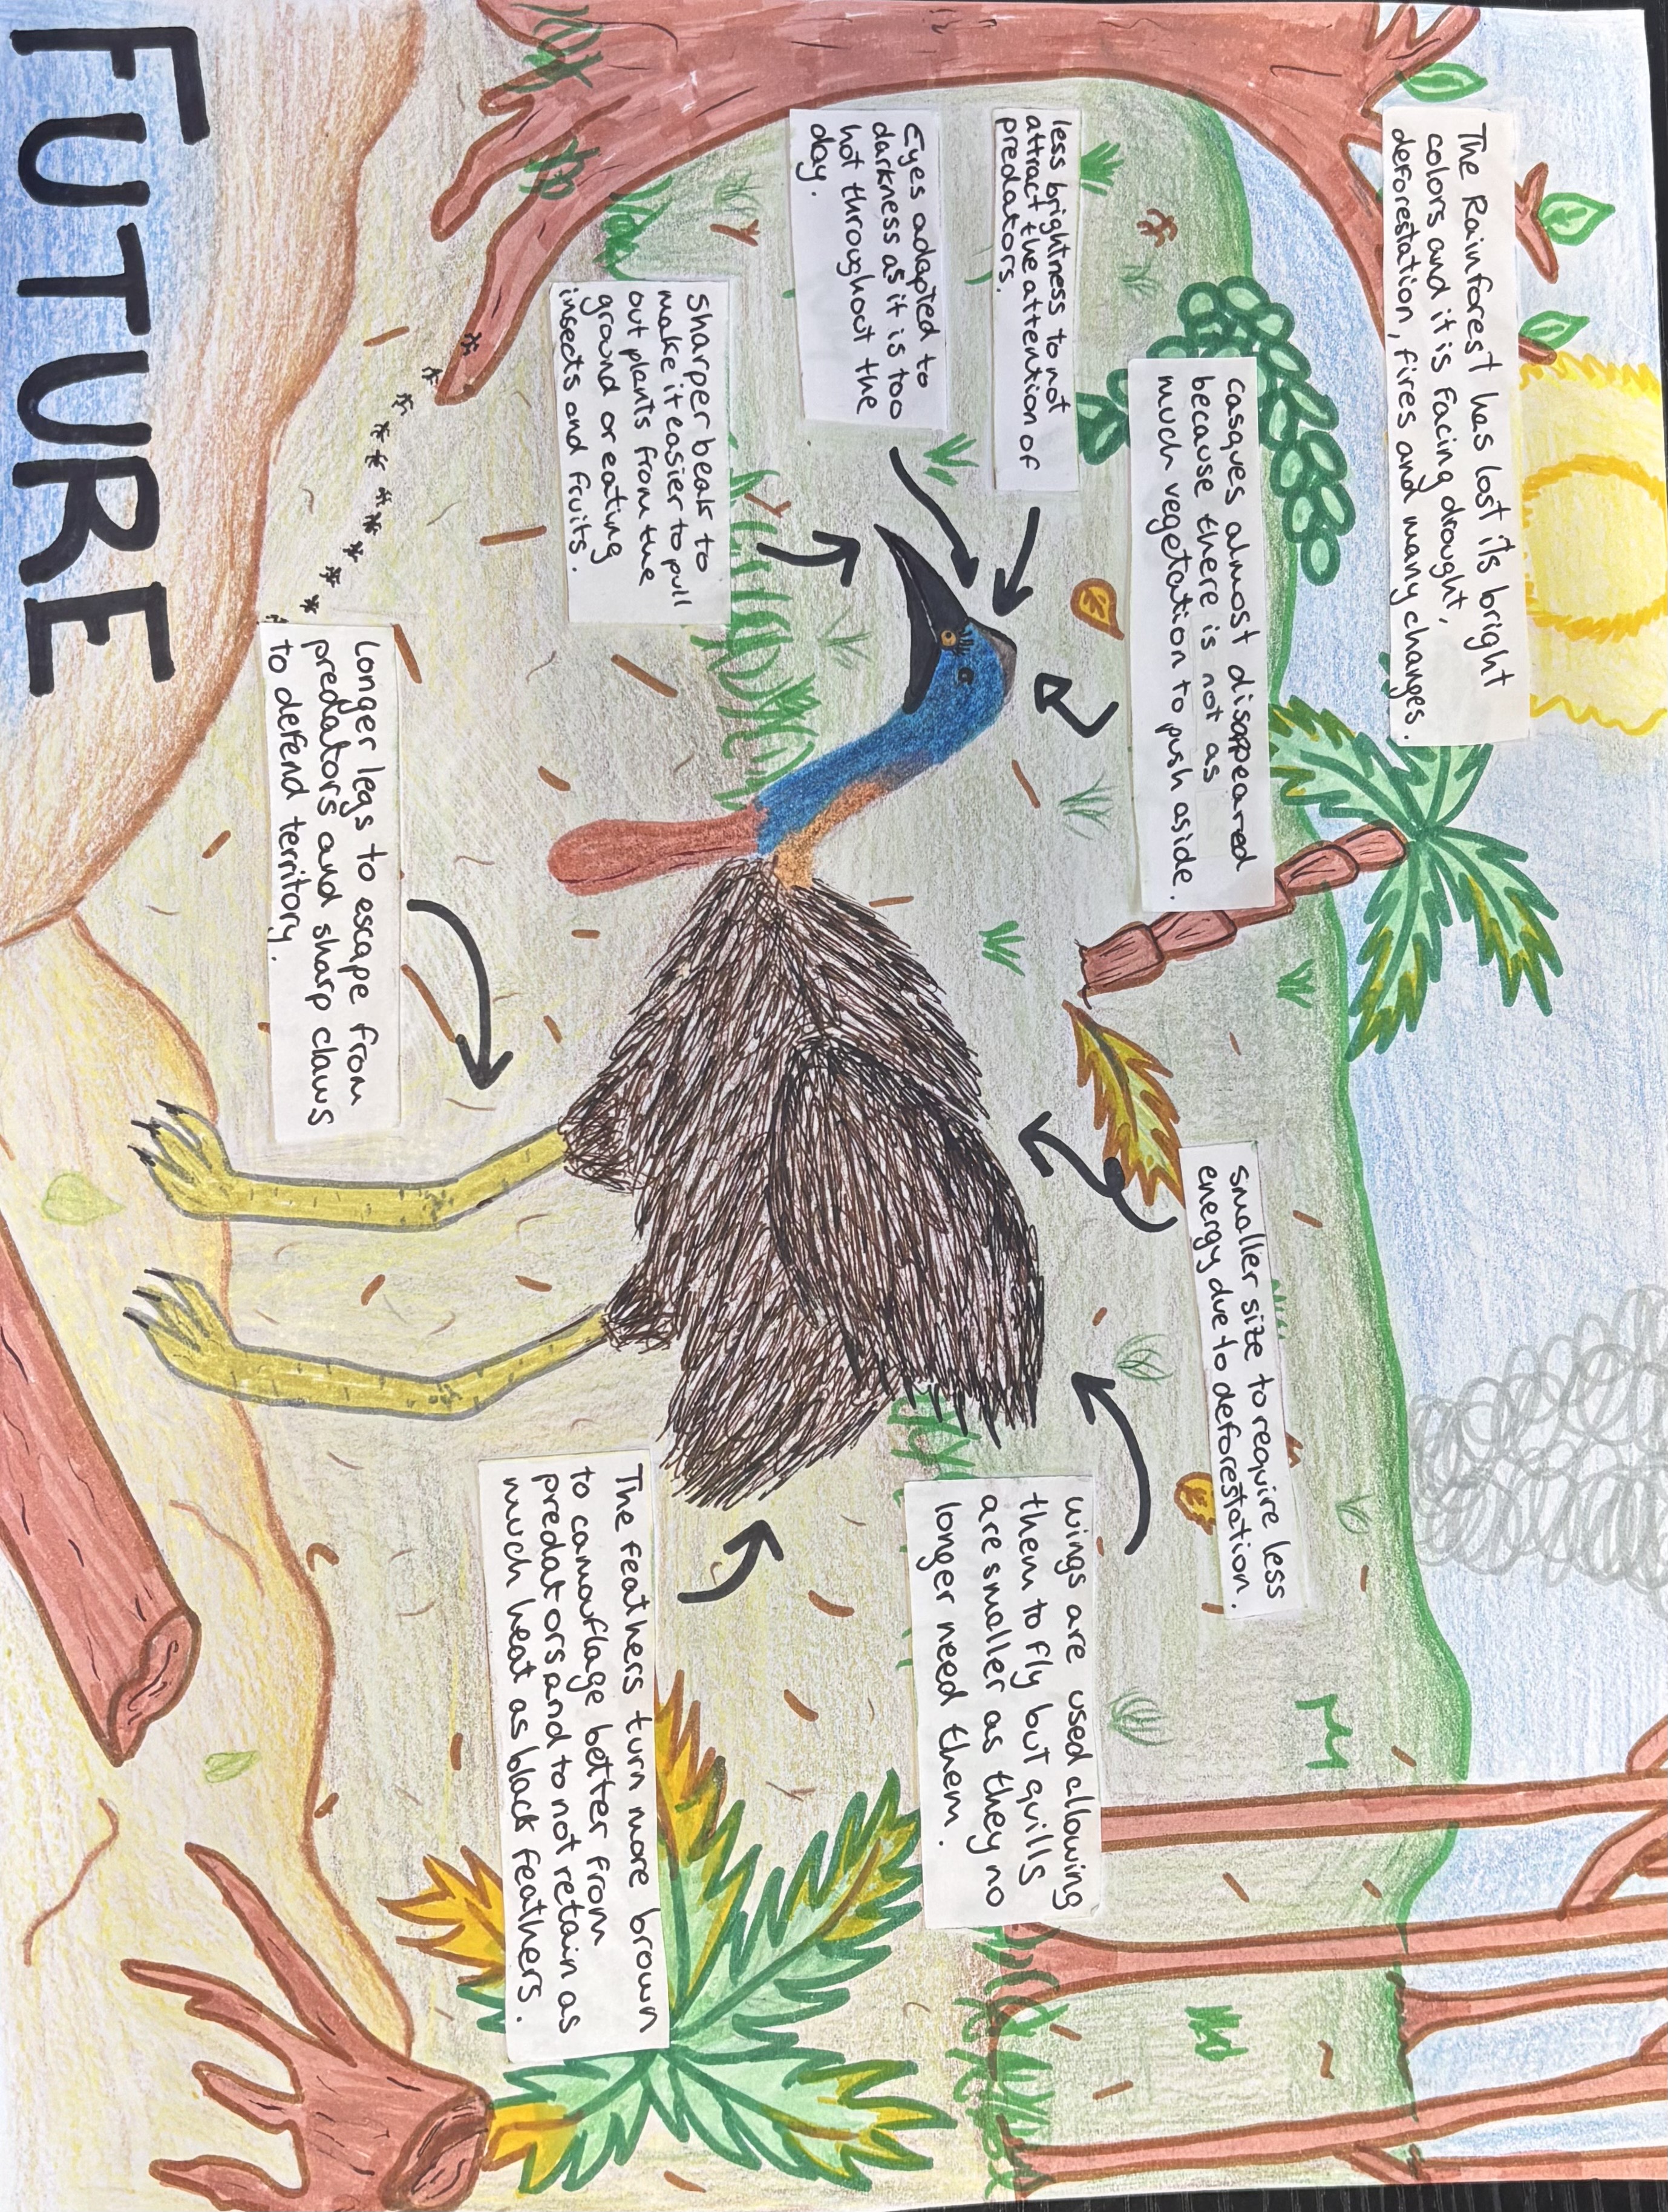 The Rainforest has lost its bright
colors and it is facing drought,
deforestation, fires and many changes.
casques almost disappeared
because there is not as
much vegetation to push aside.
less brightness to not
attract the attention of
predators.
Eyes adapted to
darkness as it is too
hot throughout the
day.
Sharper beak to
make it easier to pull
out plants from the
ground or eating
insects and fruits.
smaller size to require less
energy due to deforestation.
wings are used allowing
them to fly but quills
are smaller as they no
longer need them.
The feathers turn more brown
to camouflage better from
predators and to not retain as
much heat as black feathers.
Longer legs to escape from
predators and sharp claws
to defend territory.
FUTURE